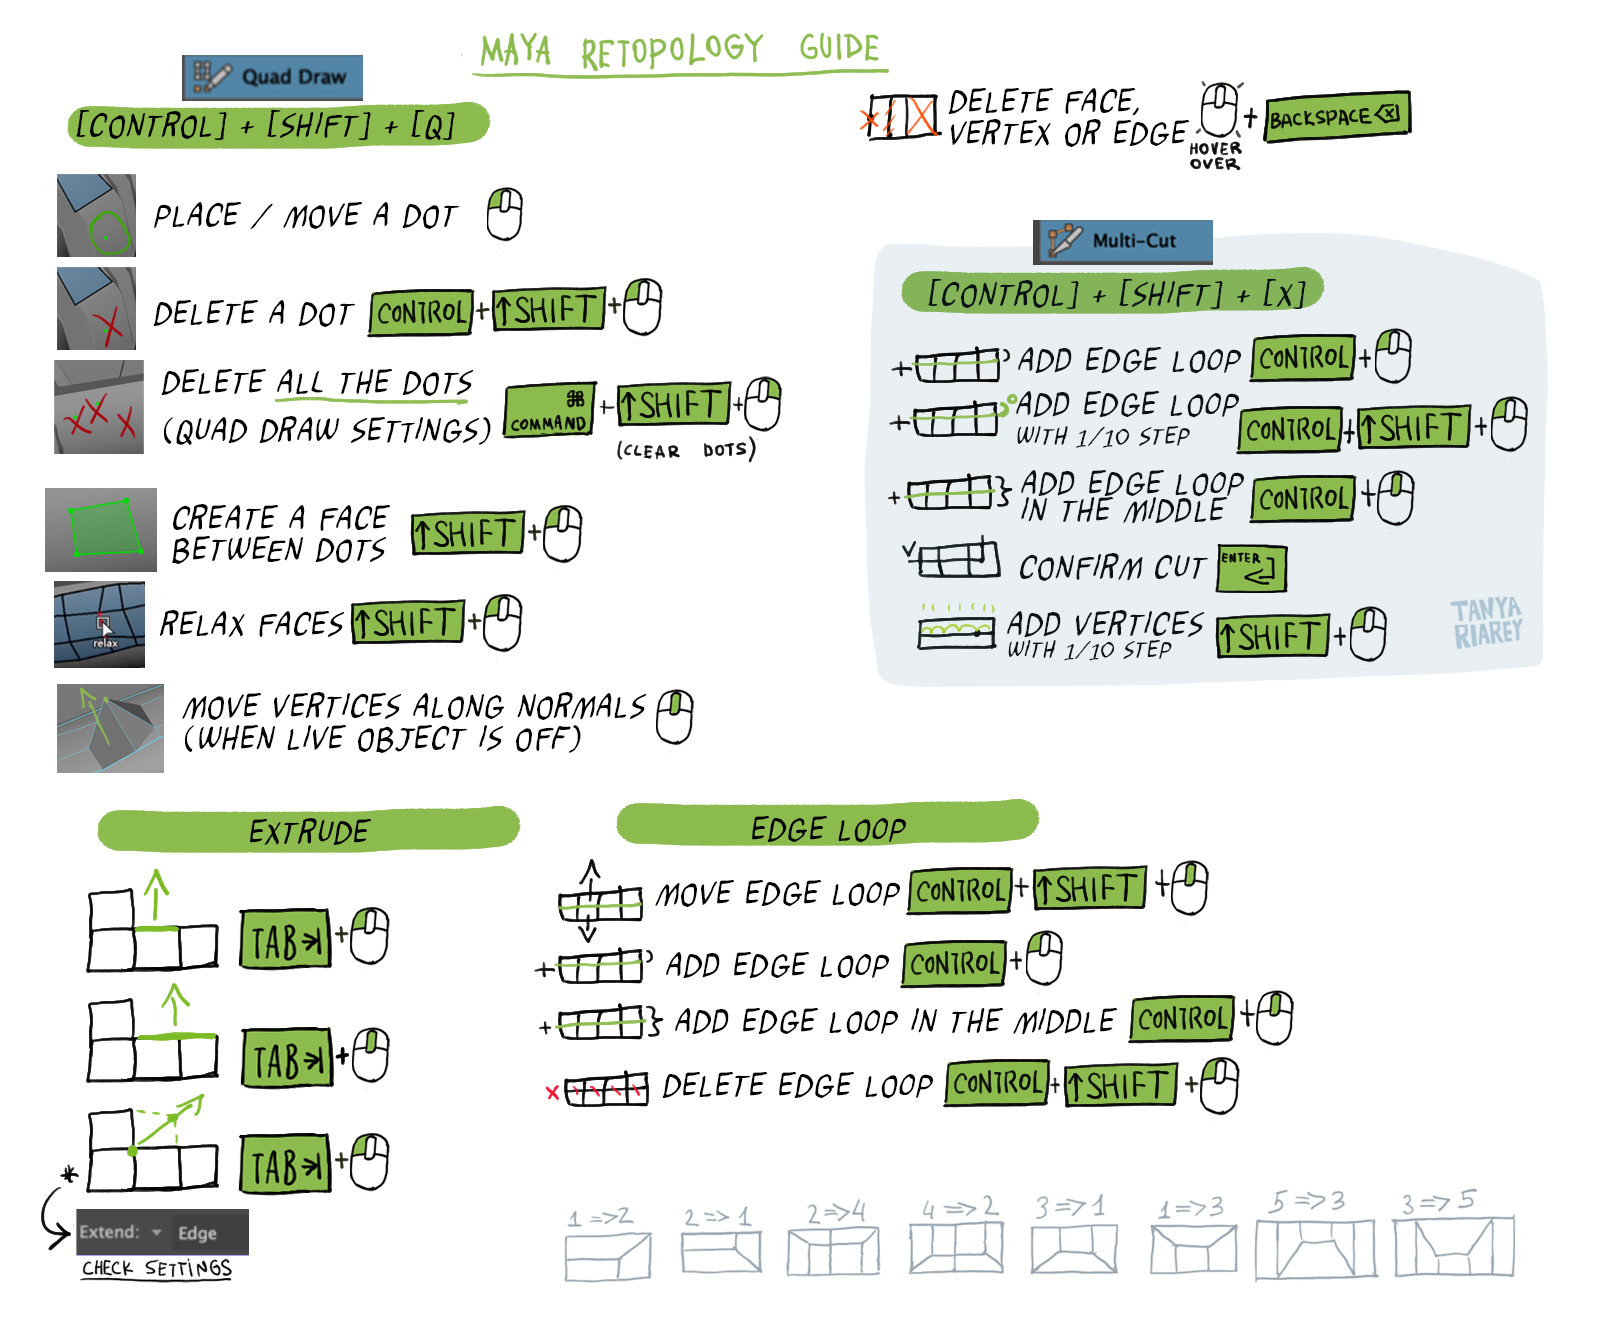 MAYA RETOPOLOGY GUIDE
Quad Draw
[CONTROL] + [SHIFT] + [Q]
PLACE / MOVE A DOT
DELETE A DOT CONTROL + ↑SHIFT +
DELETE ALL THE DOTS
(QUAD DRAW SETTINGS)
⌘
COMMAND + ↑SHIFT +
(CLEAR DOTS)
CREATE A FACE
BETWEEN DOTS ↑SHIFT +
relax
RELAX FACES ↑SHIFT +
MOVE VERTICES ALONG NORMALS
(WHEN LIVE OBJECT IS OFF)
DELETE FACE,
VERTEX OR EDGE + BACKSPACE ⌫
HOVER
OVER
Multi-Cut
[CONTROL] + [SHIFT] + [X]
+ ADD EDGE LOOP CONTROL +
+ ADD EDGE LOOP
WITH 1/10 STEP CONTROL + ↑SHIFT +
+ ADD EDGE LOOP
IN THE MIDDLE CONTROL +
CONFIRM CUT ENTER
ADD VERTICES
WITH 1/10 STEP ↑SHIFT +
TANYA
RIAREY
EXTRUDE
TAB +
TAB +
TAB +
*
Extend: Edge
CHECK SETTINGS
EDGE LOOP
MOVE EDGE LOOP CONTROL + ↑SHIFT +
+ ADD EDGE LOOP CONTROL +
+ ADD EDGE LOOP IN THE MIDDLE CONTROL +
× DELETE EDGE LOOP CONTROL + ↑SHIFT +
1=>2 2=>1 2=>4 4=>2 3=>1 1=>3 5=>3 3=>5